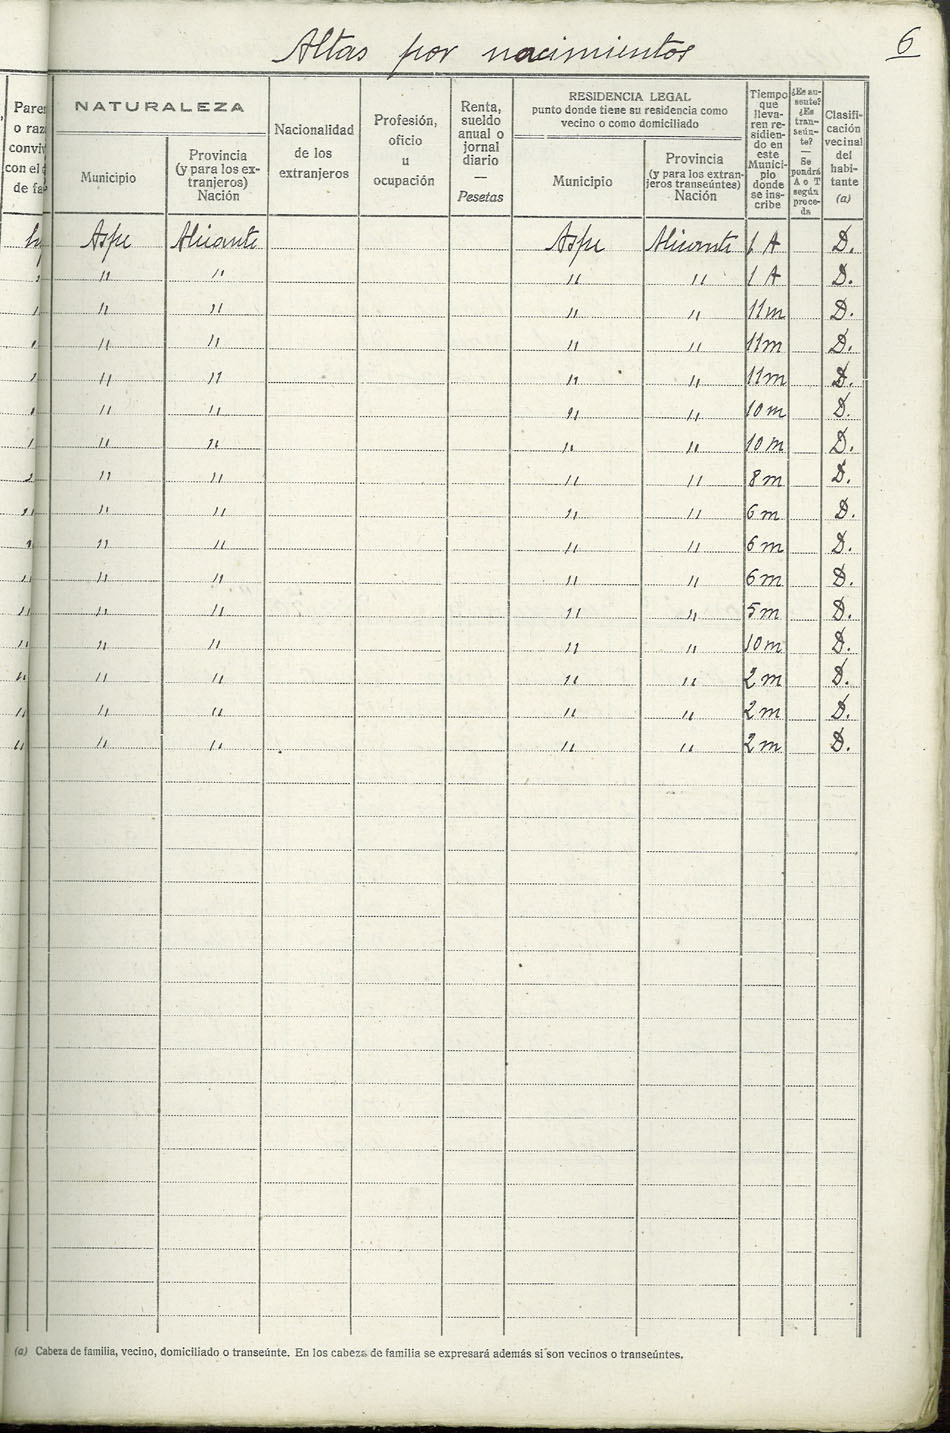 Altas por nacimientos
6
Paren
o raz
conviv
con el
de fa
NATURALEZA
Municipio
Provincia
(y para los ex-
tranjeros)
Nación
Nacionalidad
de los
extranjeros
Profesión,
oficio
u
ocupación
Renta,
sueldo
anual o
jornal
diario
—
Pesetas
RESIDENCIA LEGAL
punto donde tiene su residencia como
vecino o como domiciliado
Municipio
Provincia
(y para los extran-
jeros transeúntes)
Nación
Tiempo
que
lleva-
ren re-
sidien-
do en
este
Munici-
pio
donde
se ins-
cribe
¿Es au-
sente?
¿Es
tran-
seún-
te?
—
Se
pondrá
A o T
según
proce-
da
Clasifi-
cación
vecinal
del
habi-
tante
(a)
Aspe Alicante Aspe Alicante 1 A D.
" " " " " 1 A D.
" " " " " 11 m D.
" " " " " 11 m D.
" " " " " 11 m D.
" " " " " 10 m D.
" " " " " 10 m D.
" " " " " 8 m D.
" " " " " 6 m D.
" " " " " 6 m D.
" " " " " 6 m D.
" " " " " 5 m D.
" " " " " 10 m D.
" " " " " 2 m D.
" " " " " 2 m D.
" " " " " 2 m D.
(a) Cabeza de familia, vecino, domiciliado o transeúnte. En los cabeza de familia se expresará además si son vecinos o transeúntes.